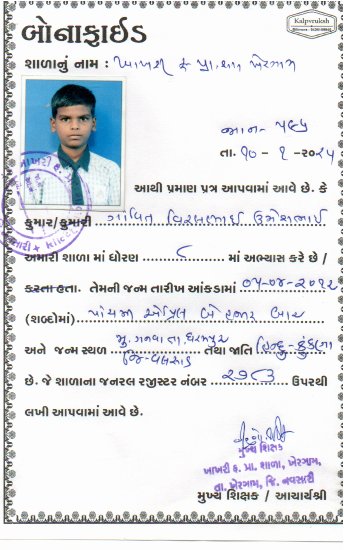 Kalpvruksh
બોનાફાઈડ
શાળાનું નામ : ખાખરી ફ પ્રા. શાળા ખેરગામ
તા. ૧૦ - ૧ - ૨૦૨૫
આથી પ્રમાણ પત્ર આપવામાં આવે છે. કે
કુમાર/કુમારી ગાવિત વિરલભાઈ ઉમેશભાઈ
અમારી શાળા માં ધોરણ ૮ માં અભ્યાસ કરે છે /
કરતા હતા. તેમની જન્મ તારીખ આંકડામાં ૦૫-૦૪-૨૦૧૨
(શબ્દોમાં) પાંચમી એપ્રિલ બે હજાર બાર
અને જન્મ સ્થળ મુ. ગનવા તા. ધરમપુર તથા જાતિ હિન્દુ - કુંકણા
જિ-વલસાડ
છે. જે શાળાના જનરલ રજીસ્ટર નંબર ૨૭૮૩ ઉપરથી
લખી આપવામાં આવે છે.
મુખ્ય શિક્ષક
ખાખરી ફ. પ્રા. શાળા, ખેરગામ,
તા. ખેરગામ, જિ. નવસારી
મુખ્ય શિક્ષક / આચાર્યશ્રી